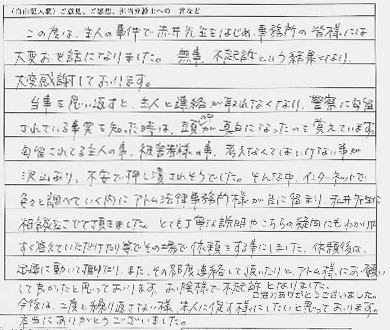 (自由記入欄)ご意見、ご感想、担当弁護士への一言など
この度は、主人の事件で赤井先生をはじめ、事務所の皆様には
大変お世話になりました。無事、不起訴という結果となり、
大変感謝しております。
当事を思い返すと、主人と連絡が取れなくなり、警察に勾留
されている事実を知った時は、頭の中が真白になったのを覚えています。
勾留されてる主人の事、被害者様の事、考えなくてはいけない事が
沢山あり、不安で押し潰されそうでした。そんな中、インターネットで
色々と調べていく内にアトム法律事務所様が目に留まり、赤井先生に
相談をさせて頂きました。とても丁寧な説明やこちらの疑問にもわかりや
すく答えていただけたり等でその場で依頼をする事にしました。依頼後は、
迅速に動いて頂けたり、また、その都度連絡して頂いたりと、アトム様にお願い
して良かったと思っております。お陰様で不起訴となりました。
ご尽力ありがとうございました。
今後は、二度と繰り返さない様、主人に促す様にしたいと思っております。
本当にありがとうございました。